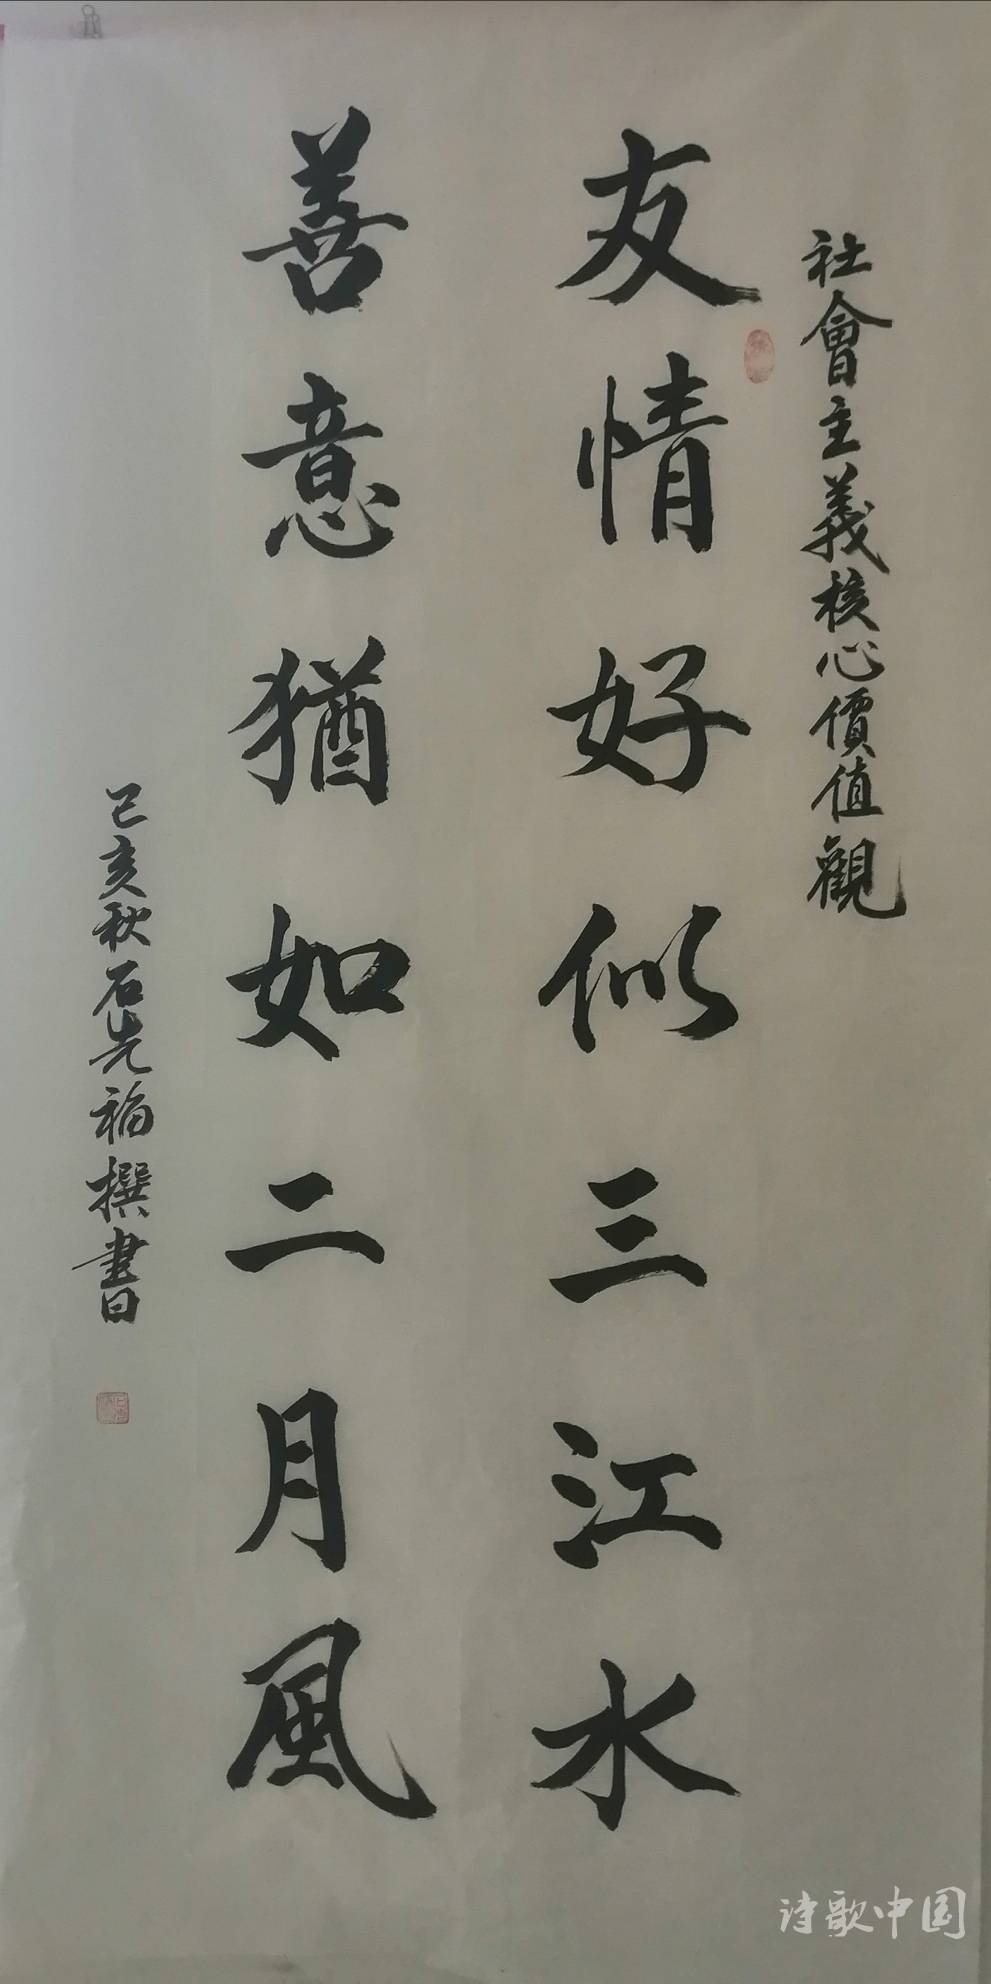 社會主義核心價值觀
友情好似三江水
善意猶如二月風
己亥秋石先福撰書
诗歌中国